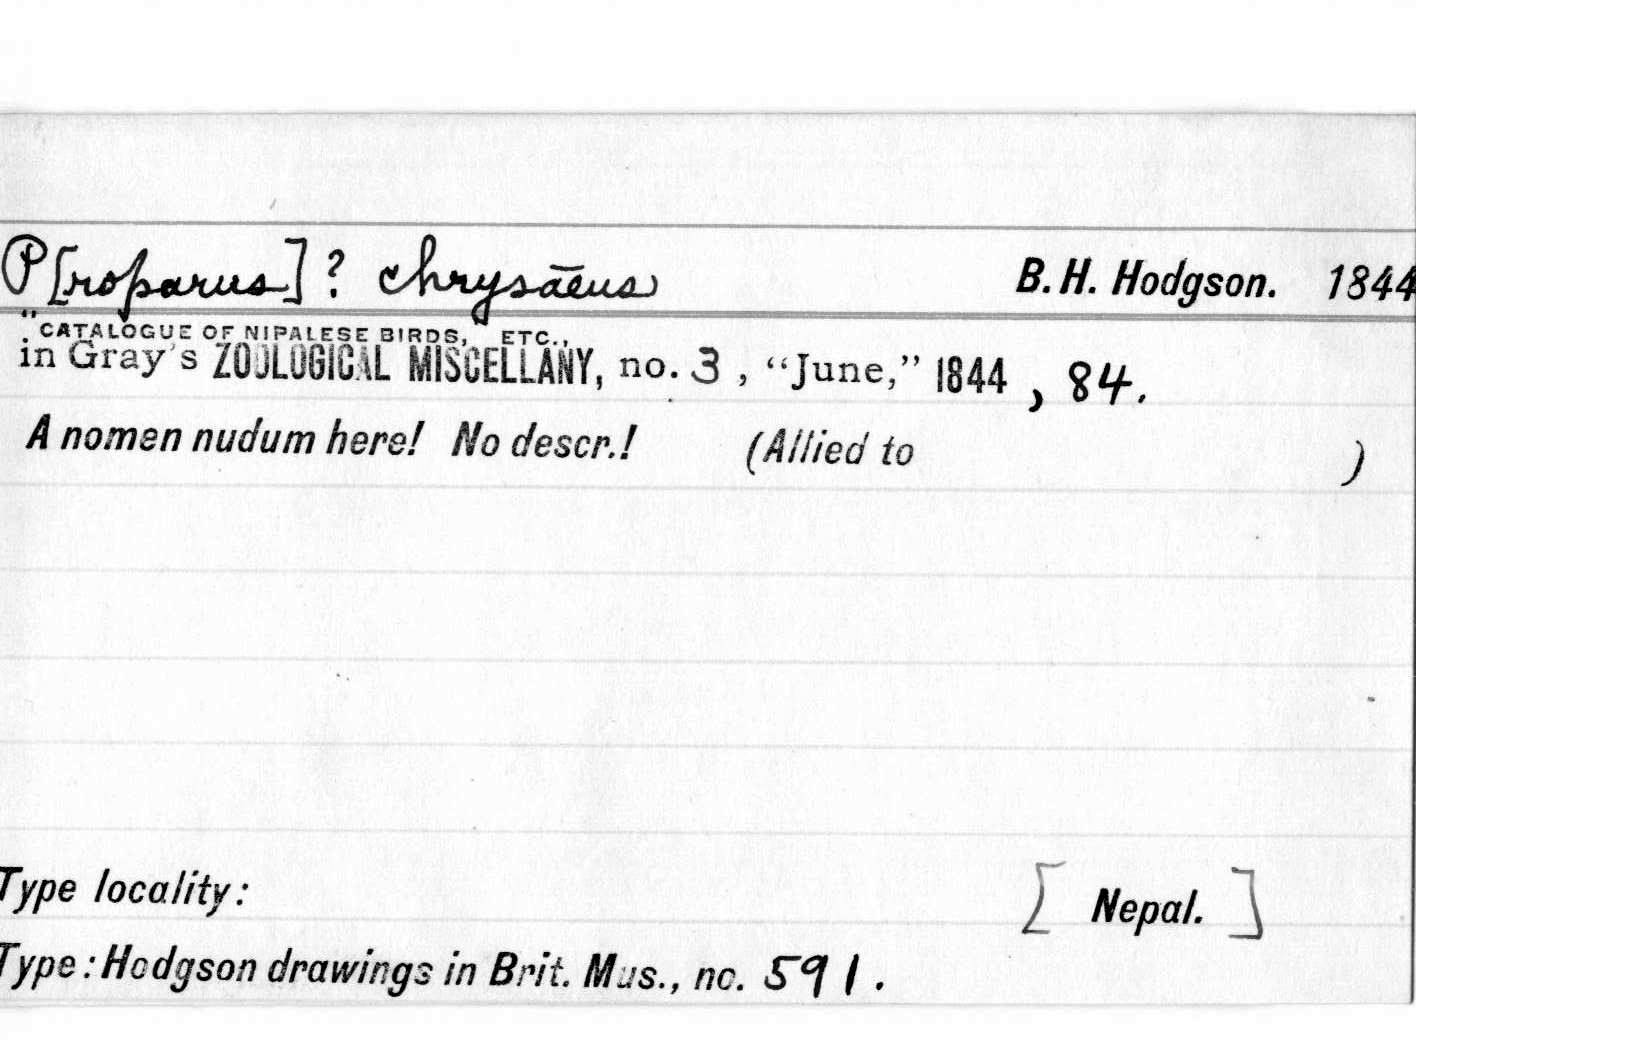 P[roparus]? chrysāeus B. H. Hodgson. 1844
"CATALOGUE OF NIPALESE BIRDS," ETC.,
in Gray's ZOOLOGICAL MISCELLANY, no. 3, “June,” 1844, 84.
A nomen nudum here! No descr.! (Allied to )
Type locality: [Nepal.]
Type: Hodgson drawings in Brit. Mus., no. 591.